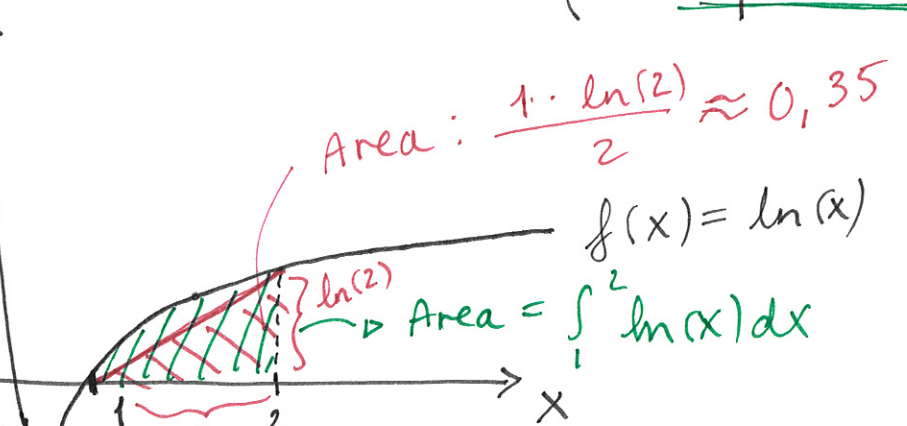 Area : 1 · ln(2) / 2 ≈ 0,35
f(x) = ln(x)
ln(2)
Area = ∫₁² ln(x) dx
x
1 2